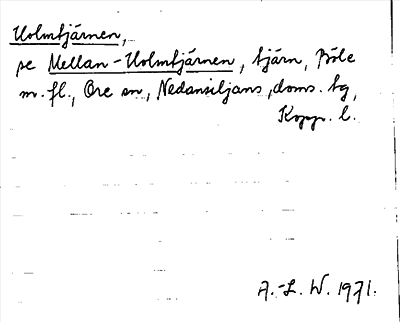 Holmtjärnen,
se Mellan-Holmtjärnen, tjärn, Böle
m. fl., Ore sn, Nedansiljans, doms. tg,
Kopp. l.
A.-L. W. 1971.